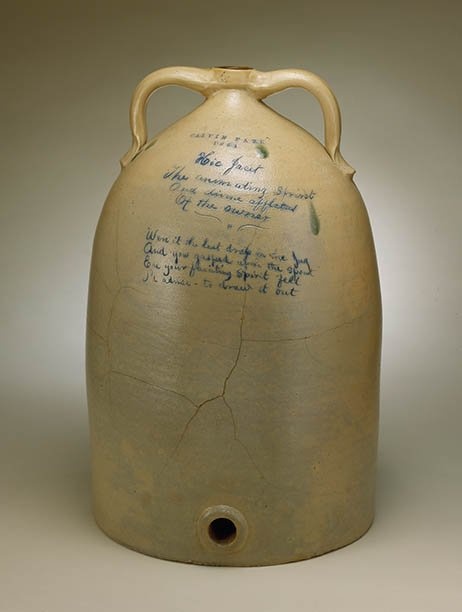 Hic Jacet
The animating Spirit
And divine afflatus
Of the owner
Wer't the last drop in the jug
And you gasped upon the spout
Ere your fainting Spirit fell
I'd advise - to draw it out